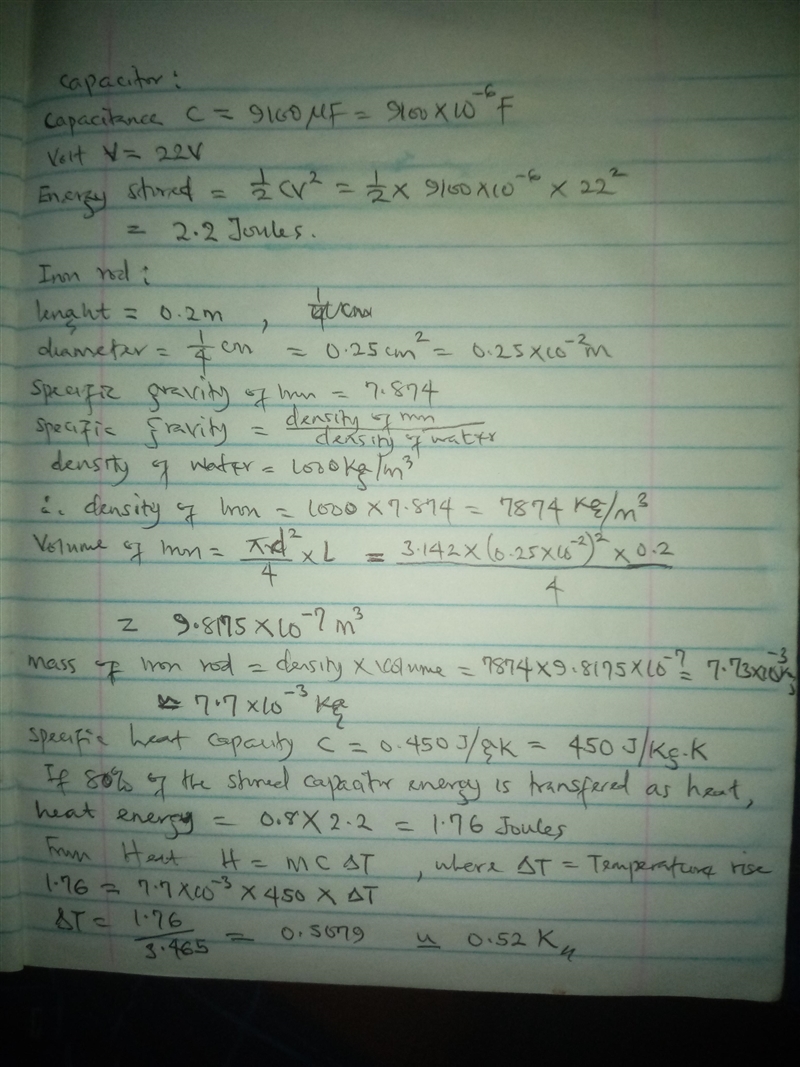 Capacitor:
Capacitance C = 9100 μF = 9100 × 10⁻⁶ F
Volt V = 22V
Energy stored = 1/2 CV² = 1/2 × 9100×10⁻⁶ × 22²
= 2.2 Joules.
Iron rod:
lenght = 0.2m ,
diameter = 1/4 cm = 0.25cm² = 0.25×10⁻²m
Specific gravity of Iron = 7.874
Specific gravity = density of iron / density of water
density of water = 1000Kg/m³
∴ density of Iron = 1000 × 7.874 = 7874 Kg/m³
Volume of Iron = πd²/4 × L = 3.142 × (0.25×10⁻²)² × 0.2 / 4
= 9.8175 × 10⁻⁷ m³
mass of iron rod = density × volume = 7874 × 9.8175 × 10⁻⁷ = 7.73×10⁻³Kg
≃ 7.7×10⁻³ Kg
Specific heat capacity C = 0.450 J/gK = 450 J/Kg.K
If 80% of the stored capacitor energy is transfered as heat,
heat energy = 0.8 × 2.2 = 1.76 Joules
From Heat H = MCΔT , where ΔT = Temperature rise
1.76 = 7.7×10⁻³ × 450 × ΔT
ΔT = 1.76 / 3.465 = 0.5079 ≃ 0.52 K